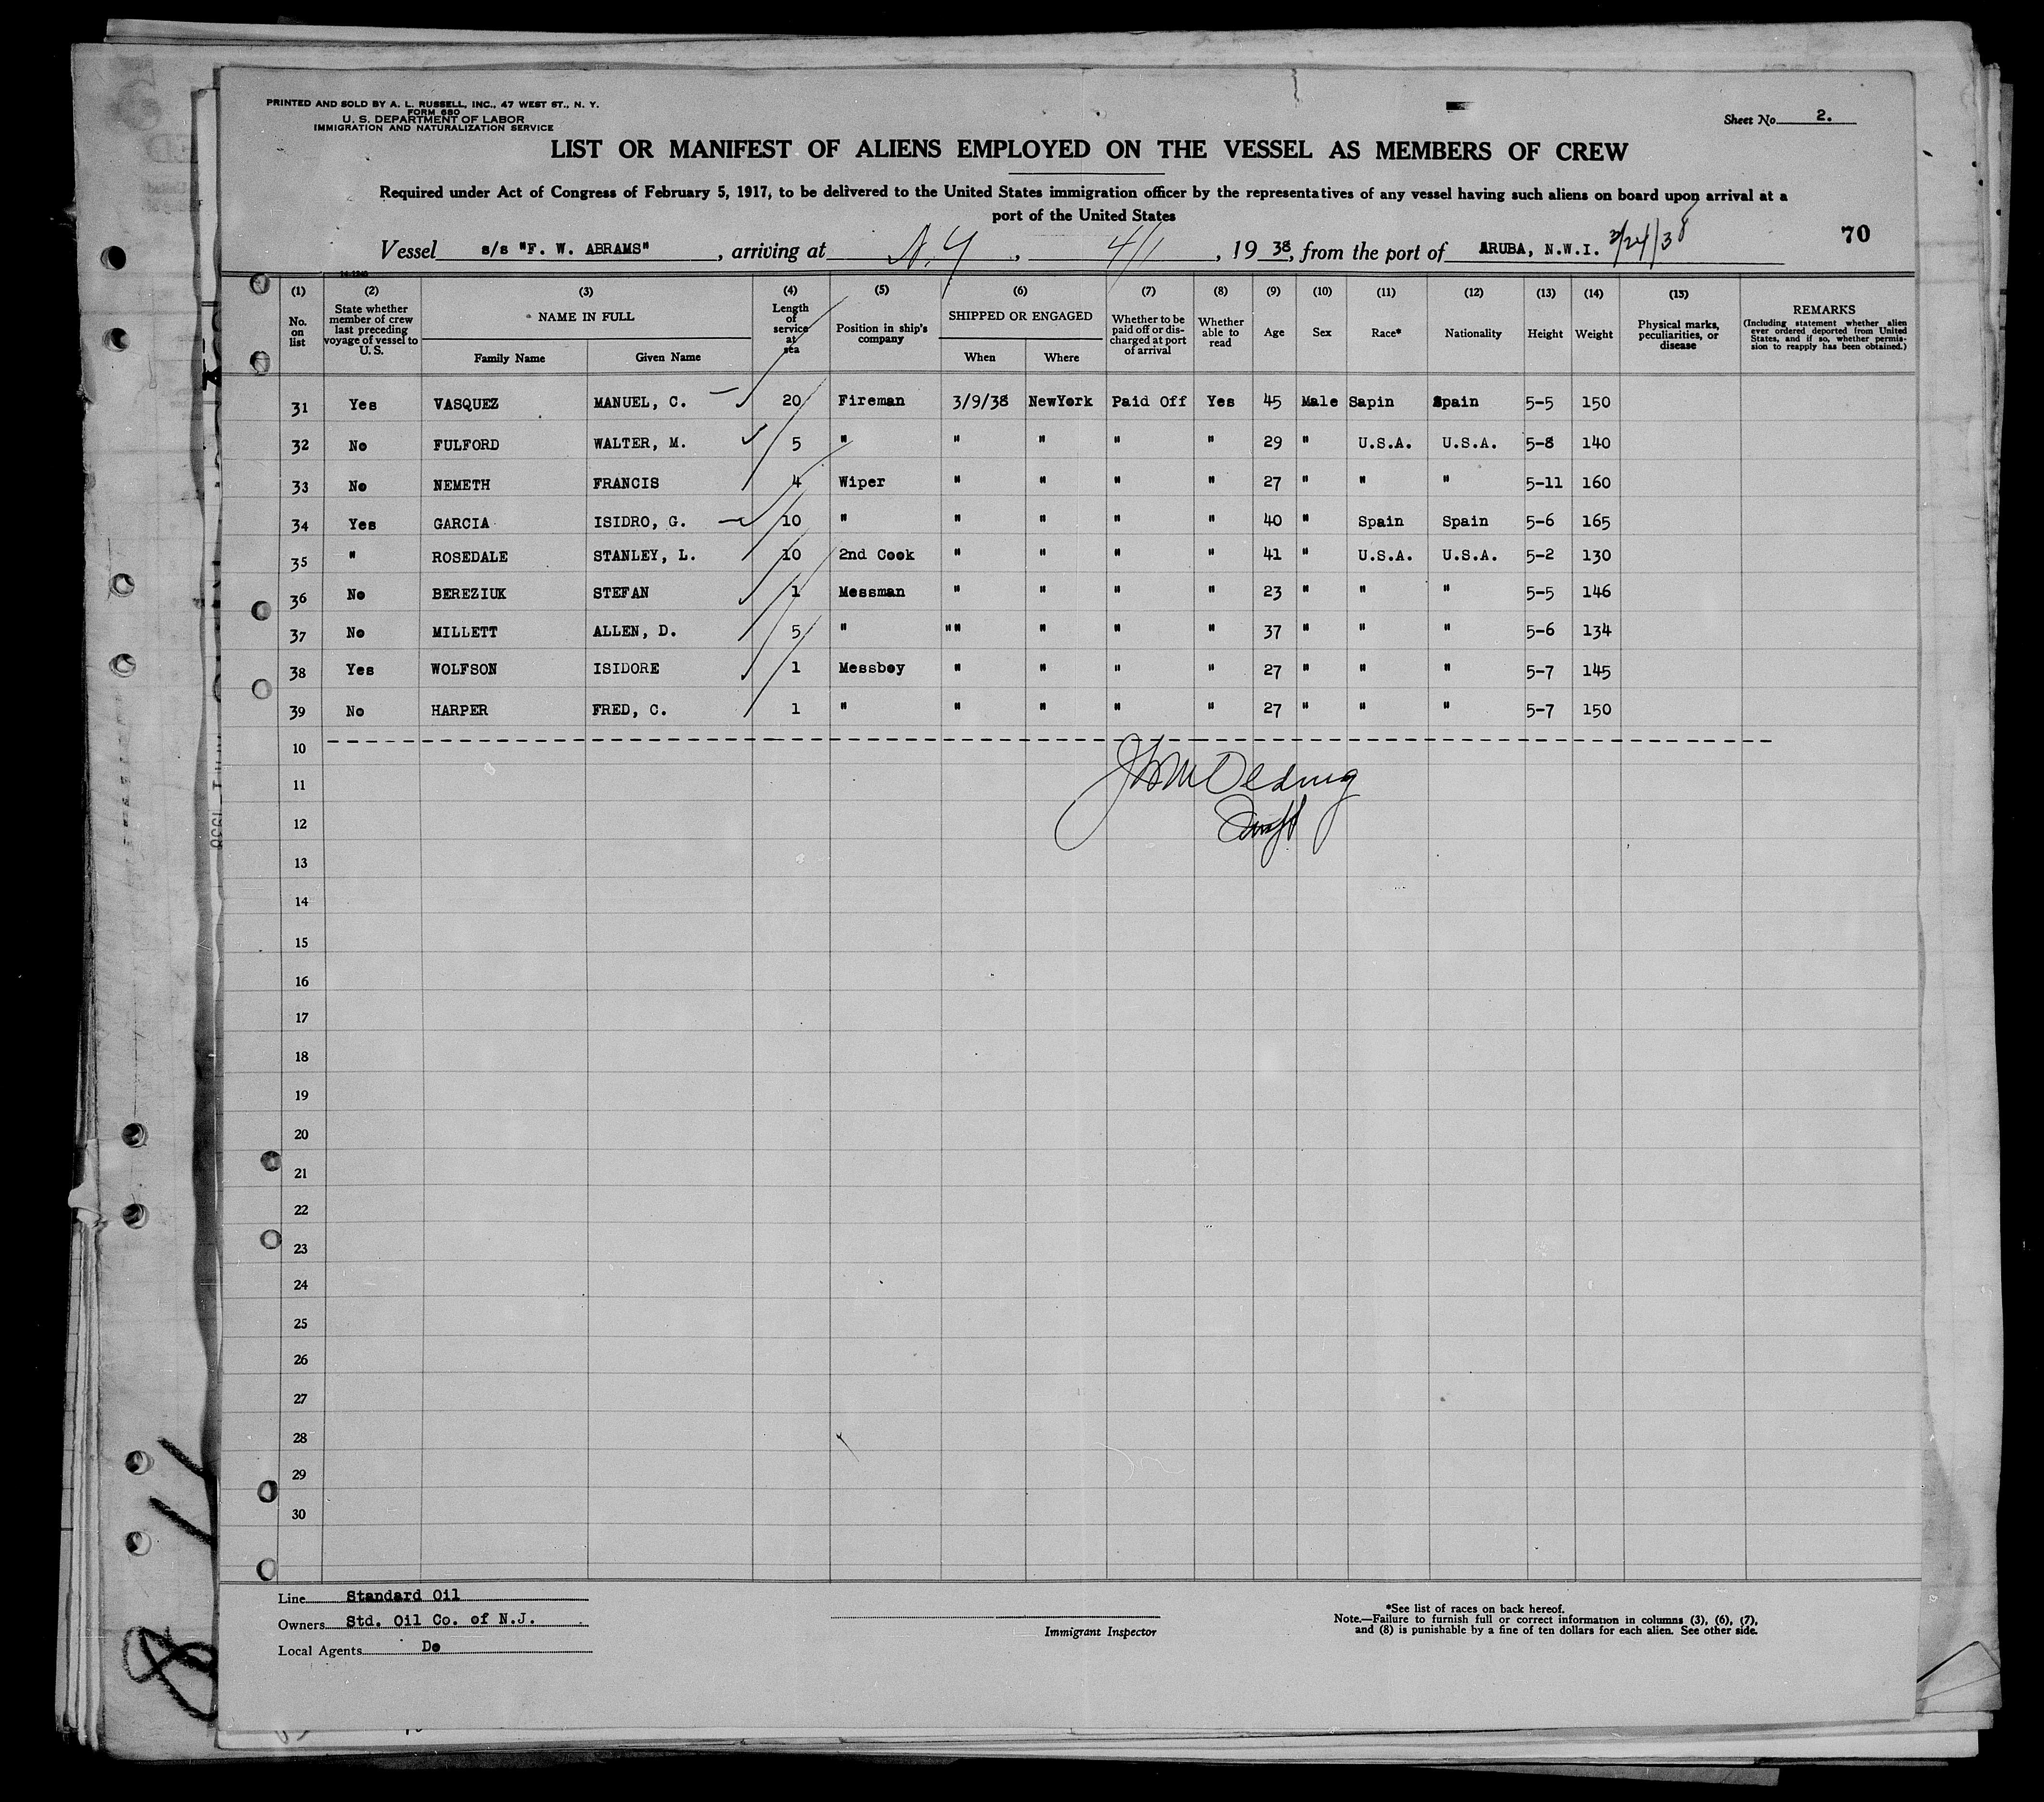 PRINTED AND SOLD BY A. L. RUSSELL, INC., 47 WEST ST., N. Y.
FORM 680
U. S. DEPARTMENT OF LABOR
IMMIGRATION AND NATURALIZATION SERVICE
Sheet No. 2.
LIST OR MANIFEST OF ALIENS EMPLOYED ON THE VESSEL AS MEMBERS OF CREW
Required under Act of Congress of February 5, 1917, to be delivered to the United States immigration officer by the representatives of any vessel having such aliens on board upon arrival at a
port of the United States
70
Vessel s/s "F. W. ABRAMS", arriving at N.Y, 4/1, 19 38, from the port of ARUBA, N.W.I. 3/24/38
(1) No. on list (2) State whether member of crew last preceding voyage of vessel to U. S. (3) NAME IN FULL Family Name Given Name (4) Length of service at sea (5) Position in ship's company (6) SHIPPED OR ENGAGED When Where (7) Whether to be paid off or discharged at port of arrival (8) Whether able to read (9) Age (10) Sex (11) Race* (12) Nationality (13) Height (14) Weight (15) Physical marks, peculiarities, or disease REMARKS (Including statement whether alien ever ordered deported from United States, and if so, whether permission to reapply has been obtained.)
31 Yes VASQUEZ MANUEL, C. 20 Fireman 3/9/38 NewYork Paid Off Yes 45 Male Sapin Spain 5-5 150
32 No FULFORD WALTER, M. 5 " " " " " 29 " U.S.A. U.S.A. 5-8 140
33 No NEMETH FRANCIS 4 Wiper " " " " 27 " " " 5-11 160
34 Yes GARCIA ISIDRO, G. 10 " " " " " 40 " Spain Spain 5-6 165
35 " ROSEDALE STANLEY, L. 10 2nd Cook " " " " 41 " U.S.A. U.S.A. 5-2 130
36 No BEREZIUK STEFAN 1 Messman " " " " 23 " " " 5-5 146
37 No MILLETT ALLEN, D. 5 " "" " " " 37 " " " 5-6 134
38 Yes WOLFSON ISIDORE 1 Messboy " " " " 27 " " " 5-7 145
39 No HARPER FRED, C. 1 " " " " " 27 " " " 5-7 150
10
11
12
13
14
15
16
17
18
19
20
21
22
23
24
25
26
27
28
29
30
Line Standard Oil
Owners Std. Oil Co. of N.J.
Local Agents Do
Immigrant Inspector
*See list of races on back hereof.
Note.—Failure to furnish full or correct information in columns (3), (6), (7),
and (8) is punishable by a fine of ten dollars for each alien. See other side.